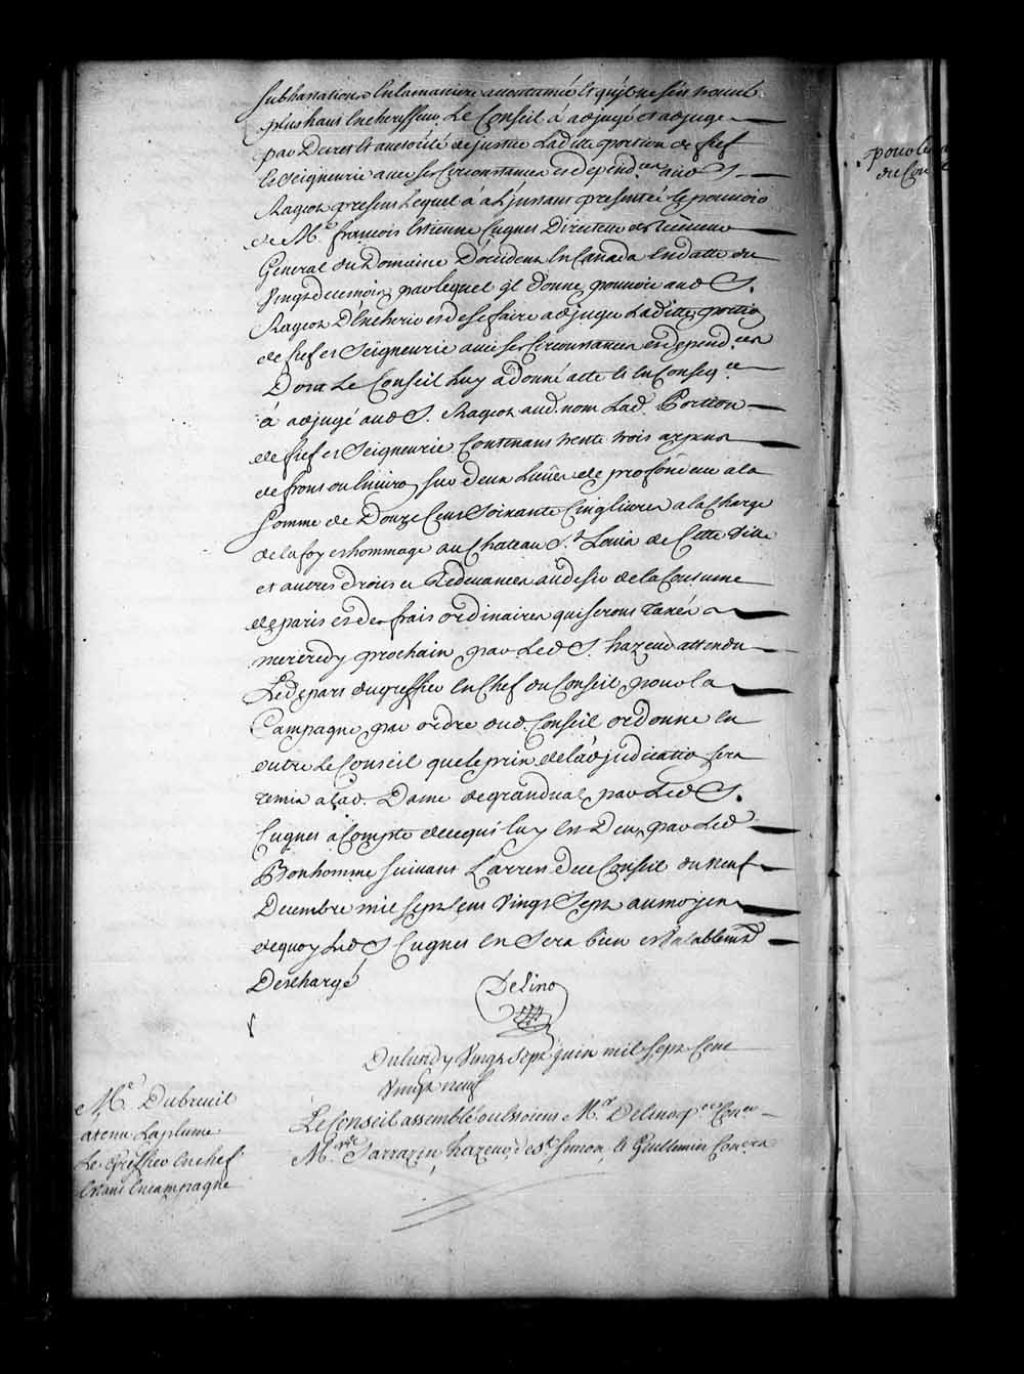 Subhastations En la maniere accoutumée Et qu'il ne s'est trouvé
plus haut Encherisseur Le Conseil à adjugé et adjuge
par Decret Et autorité de justice Ladite portion de fief
Et seigneurie avec ses Circonstances et depend.ces aud S.
Rageot present Lequel à à L'jnstant presenté Le pouvoir
de M.e françois Estienne Cugnet Directeur et Receveur
General du Domaine D'occident En Canada En datte du
Vingt de ce mois, par lequel jl donne pouvoir aud S.
Rageot D'Encherir et de se faire adjuger Ladite portion
de fief et Seigneurie avec ses Circonstances et depend.ces
Dont Le Conseil Luy a donné acte Et En Conseq.ce
à adjugé aud S. Rageot aud. nom Lad. Portion
de fief et Seigneurie Contenant trente trois arpens
de front ou Environ sur deux Lieües de profondeur a la
Somme de Douze Cent Soixante Cinq livres a la Charge
de la foy et hommage au Chateau S.t Loüis de Cette Ville
et autres droits et Redevances au desir de la Coutume
de paris et des frais ordinaires qui seront taxés
mercredy prochain par Led S. hazeur attendu
Le depart du greffier En Chef du Conseil pour la
Campagne par ordre dud. Conseil ordonne En
outre Le Conseil que le prix de l'adjudication sera
remis a Lad. Dame de grandval par Led S.
Cugnet à Compte de ce qui luy Est Deu par Led
Bonhomme suivant L'arrest de ce Conseil du neuf
Decembre mil sept Cent Vingt Sept au moyen
de quoy Led S Cugnet En Sera bien et Valablem.t
Deschargé
Delino
Du lundy Vingt Sept juin mil Sept Cent
Vingt neuf
Le Conseil assemblé ou Estoient M.r Delino p.er Con.er
M.rs Sarrazin, hazeur, de S.t Simon, Et Guillemin Con.ers
M.e Dubreuil
a tenu La plume
Le Greffier En chef
Etant En campagne
pour
du Con